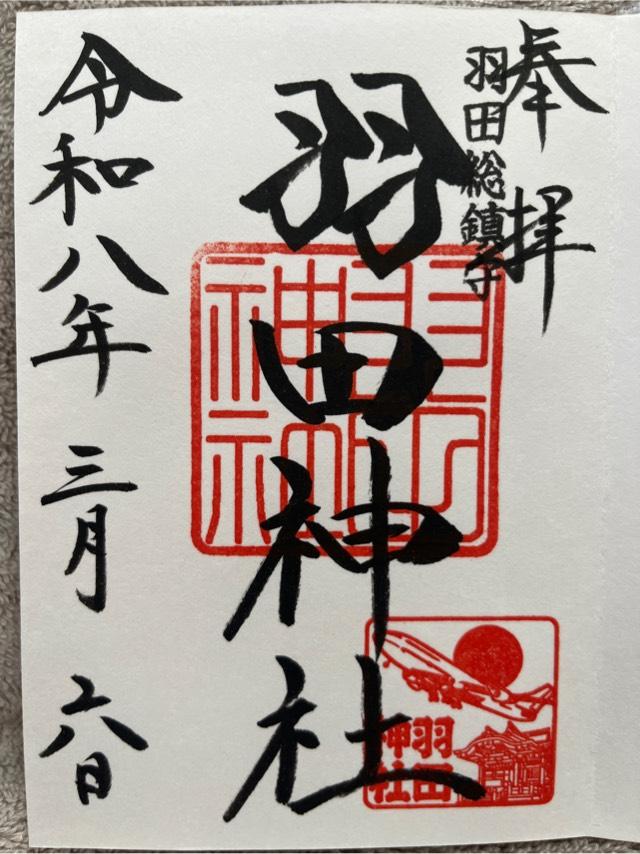 奉拝
羽田総鎮守
羽田神社
令和八年 三月 六日
羽田
神社